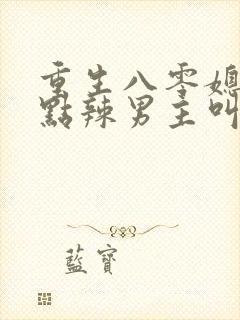 重生八零媳
點辣男主叫
藍寶